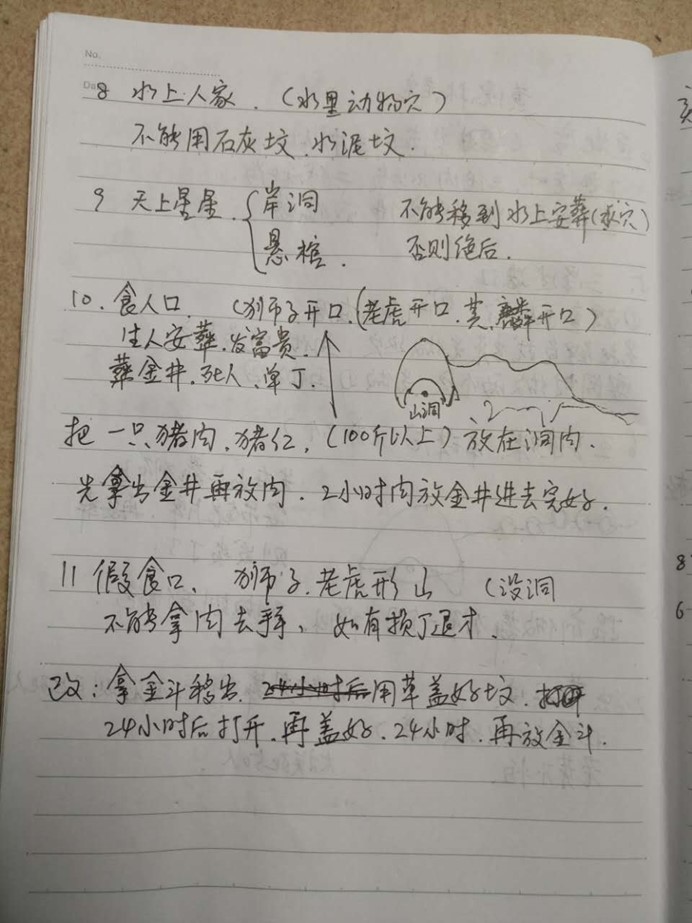 No.
8 水上人家.（水里动物穴）
不能用石灰坟、水泥坟.
9 天上星星. { 岸洞 不能移到水上安葬(水穴)
悬棺. 否则绝后.
10. 食人口. (狮子开口.(老虎开口. 麒麟开口)
生人安葬.发富贵.
葬金井.死人、单丁.
山洞
把一只猪肉.猪红,(100斤以上)放在洞内.
先拿出金井再放肉. 2小时内放金井进去完好.
11 假食口、狮子.老虎形山 (没洞
不能拿肉去葬、如有损丁退才.
改:拿金斗移出. 24小时后用草盖好坟.打开
24小时后打开.再盖好.24小时.再放金斗.
8
6